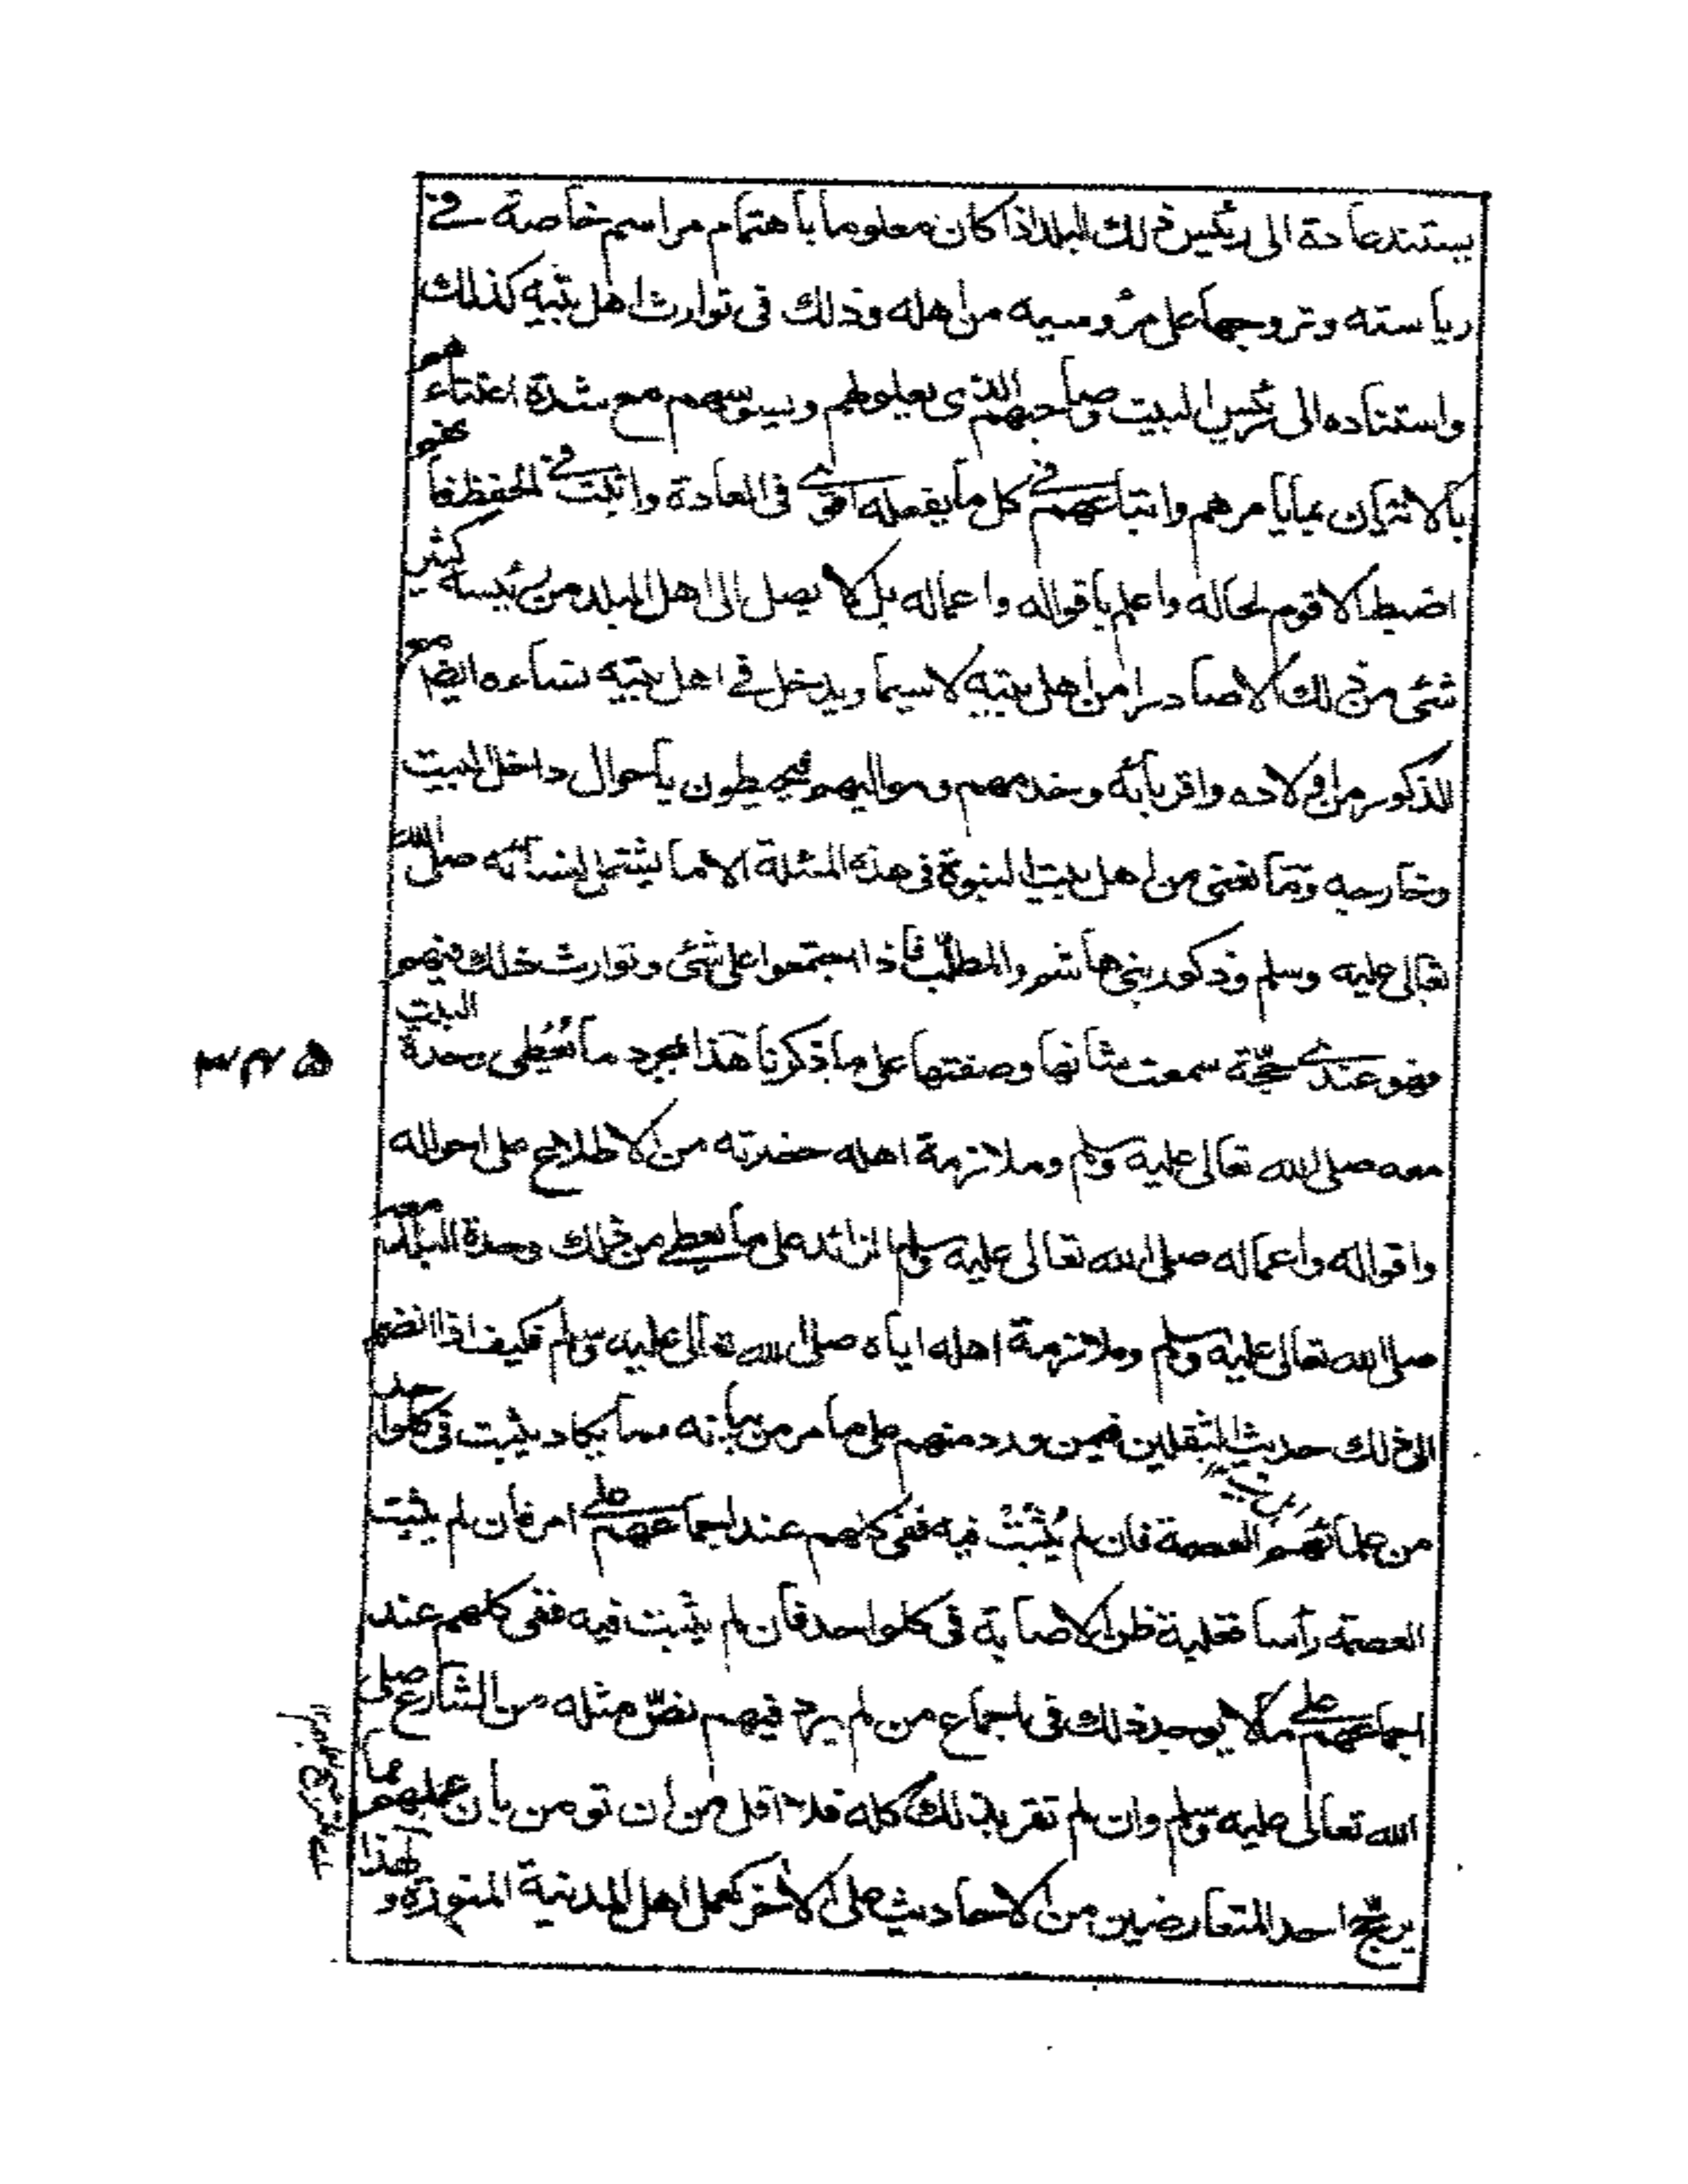 يستند عادة الى رئيس ذلك البلد اذا كان معلوما باهتمام مراسم خاصة في
رياسته وتروجها على مرؤسيه من اهله وذلك في توارث اهل بيته كذلك
واستناده الى رئيس البيت وصاحبهم الذى يعلوهم ويسوسهم مع شدة اعتناءهم
بالاتيان بما يامرهم واتباعهم في كل ما يفعله اقوى في العادة واثبت في الحفظ فانهم
اضبط الاقوم لحاله واعلم باقواله واعماله بل لا يصل الى اهل البلد من رئيسه كثير
شئ من ذلك الا صادرا من اهل بيته لا سيما ويدخل في اهل بيته نساءه ايضا مع
الذكور من اولاده واقربائه وخدمهم ومواليهم فيحيطون باحوال داخل البيت
وخارجه وما نعنى من اهل بيت النبوة في هذه المسئلة الا ما يشتمل لنسائه صلى الله
تعالى عليه وسلم وذكور بنى هاشم والمطلب فاذا اجتمعوا على شئ وتوارث ذلك فيهم
فهو عندى حجّة سمعت شانها وصفتها على ما ذكرنا هذا مجرد ما تُعطى وحدة البيت
معه صلى الله تعالى عليه وسلم وملازمة اهله حضرته من الاطلاع على احواله
واقواله واعماله صلى الله تعالى عليه وسلم الزائد على ما يعطى من ذلك وحدة البلد معه
صلى الله تعالى عليه وسلم وملازمة اهله اياه صلى الله تعالى عليه وسلم فكيف اذا انضم
الى ذلك حديث الثقلين فيمن ورد منهم على ما مر من بيانه مما يكاد يثبت في كل واحد
من علمائهم العصمة فان لم يُثبتْ فيه ففى كلهم عند اجماعهم على امر فان لم يثبت
العصمة رأسا فغلبة ظن الاصابة في كل واحد فان لم يثبت فيه ففى كلهم عند
اجماعهم على ما لا يوجد ذلك في اجماع من لم يرد فيهم نصّ مثله من الشارع صلى
الله تعالى عليه وسلم وان لم تقر بذلك كله فلا اقل من ان تومن بان عملهم مما
يرجّح احد المتعارضين من الاحاديث على الاخر كعمل اهل المدينة المنورة وهذا
٣٢٥